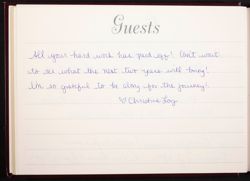 Guests
All your hard work has paid off! Can't wait
to see what the next two years will bring!
I'm so grateful to be along for the journey!
♡ Christine